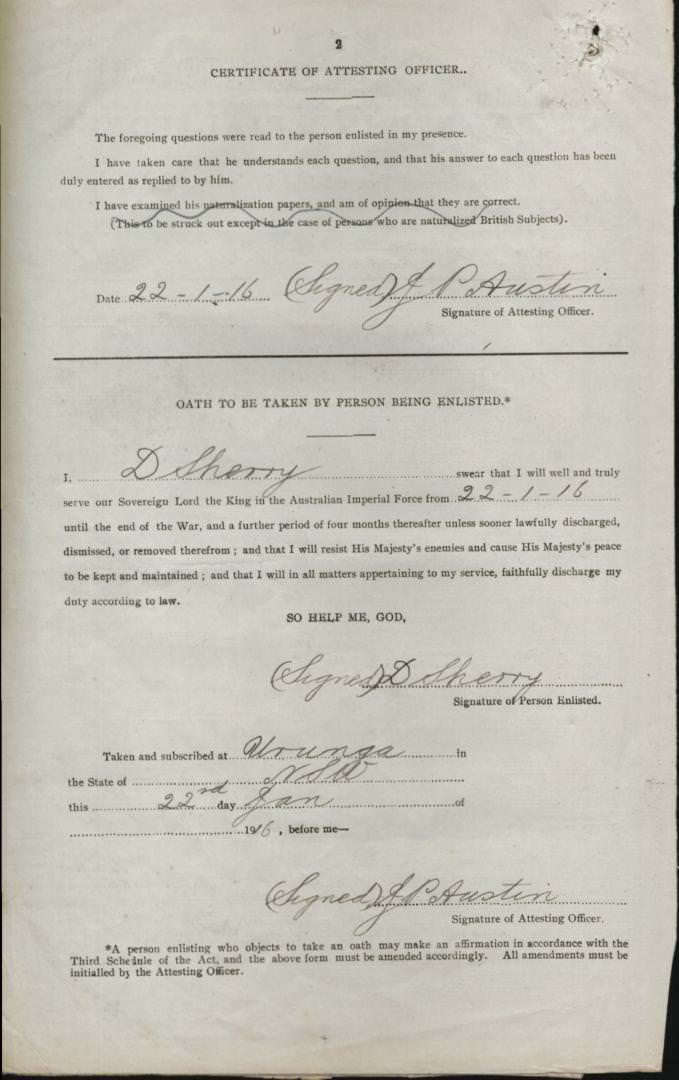 2
CERTIFICATE OF ATTESTING OFFICER..
The foregoing questions were read to the person enlisted in my presence.
I have taken care that he understands each question, and that his answer to each question has been
duly entered as replied to by him.
I have examined his naturalization papers, and am of opinion that they are correct.
(This to be struck out except in the case of persons who are naturalized British Subjects).
Date 22-1-16 (Signed) J P Austin
Signature of Attesting Officer.
OATH TO BE TAKEN BY PERSON BEING ENLISTED.*
I, D Sherry swear that I will well and truly
serve our Sovereign Lord the King in the Australian Imperial Force from 22-1-16
until the end of the War, and a further period of four months thereafter unless sooner lawfully discharged,
dismissed, or removed therefrom ; and that I will resist His Majesty's enemies and cause His Majesty's peace
to be kept and maintained ; and that I will in all matters appertaining to my service, faithfully discharge my
duty according to law.
SO HELP ME, GOD,
(Signed) D Sherry
Signature of Person Enlisted.
Taken and subscribed at Urunga in
the State of NSW
this 22nd day Jan of
1916, before me—
(Signed) J P Austin
Signature of Attesting Officer.
*A person enlisting who objects to take an oath may make an affirmation in accordance with the
Third Schedule of the Act, and the above form must be amended accordingly. All amendments must be
initialled by the Attesting Officer.